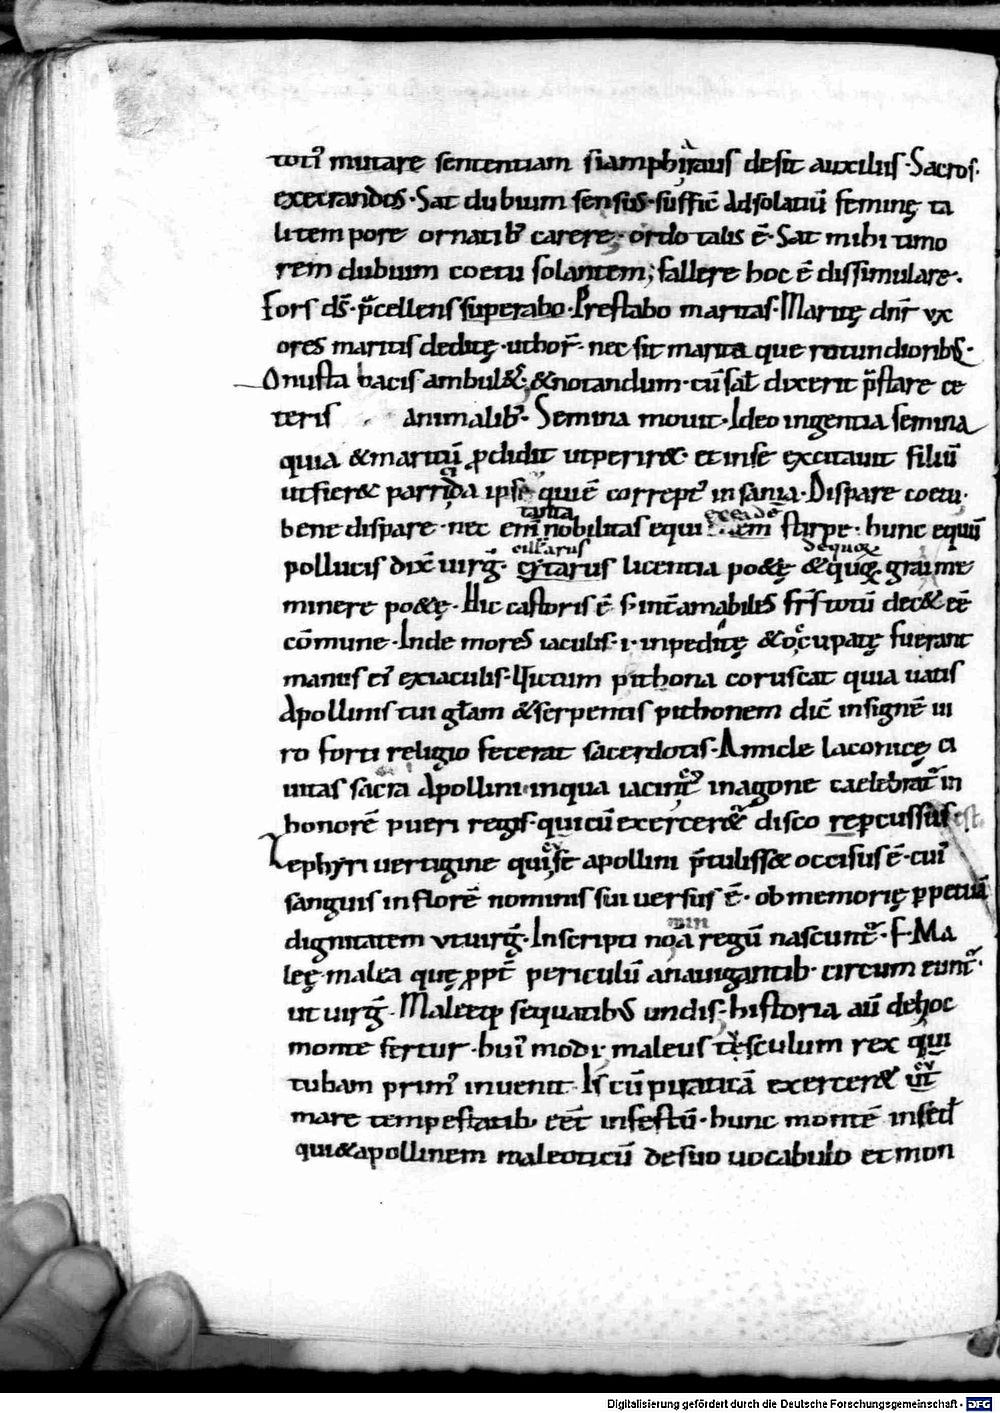 toti᷒ mutare sententiam siamphi̧raus desit auxiliis · Sacros ·
execrandos · Sat dubium sensus · suffic̄ Ad solatiū feminę ta
li tempore ornatib᷒ carere · ordo talis ē · Sat mihi timo
rem dubium coetu solantem ; fallere hoc ē dissimulare ·
Fors ds̄ · p̄cellens superabo · Prestabo maritas · Maritę dn̄r vx
ores maritis deditę · ut hor̄ · nec sit marita que rotundiorib᷒ ·
Onusta bacis ambul& · & notandum · cū sal̄ dixerit p̄stare ce
teris animalib᷒ · Semina mouit · Ideo ingentia semina
quia & maritū ꝓdidit ut perir& · et inse excitauit filiū
ut fier& parricida ipse qui ē corrept᷒ insania · Dispare coetu ·
bene dispare · nec enī tanta nobilitas equi ... em stirpe · hunc equū
pollucis dix̄ uirḡ · cyllarus cy̧tarus licentia po&ę & de quoꝝ quoꝝ · grai me
minere po&ę · Hic castoris ē · s · int̄ amabiles fr̄s totū dec& eē
cōmune · Inde mores iaculis · i · inpeditę & occupatę fuerant
manus ei᷒ ex iaculis · Uictum pithona coruscat quia uatis
Apollinis tui gl̄am & serpentis pithonem dic̄ insignē ui
ro forti religio fecerat sacerdotis · Amicle laconicę ci
uitas sacra Apollini · in qua iacint᷒ in agone caelebrat᷑ in
honorē pueri regis · qui cū exercer&᷑ disco repercussus est
Zephyri uertigine qui se apollini p̄tuliss& occisus ē · cui᷒
sanguis in florē nominis sui uersus ē · ob memorię ꝑpetuā
dignitatem vt uirḡ · Inscripti noa min regū nascunt᷑ · F · Ma
leę · malea quę ꝓpt̄ periculū anauigantib · circum eunt᷑ ·
ut uirḡ · Maleeq; sequatib᷒ undis · historia aū de hoc
monte fertur · hui᷒ modi ; maleus tesculum rex qui
tubam prim᷒ inuenit · Is cū piraticā exercer& ut
mare tempestatib᷒ eēt infestū · hunc montē insed̄
qui & apollinem maleoticū de suo uocabulo et mon
Digitalisierung gefördert durch die Deutsche Forschungsgemeinschaft - DFG